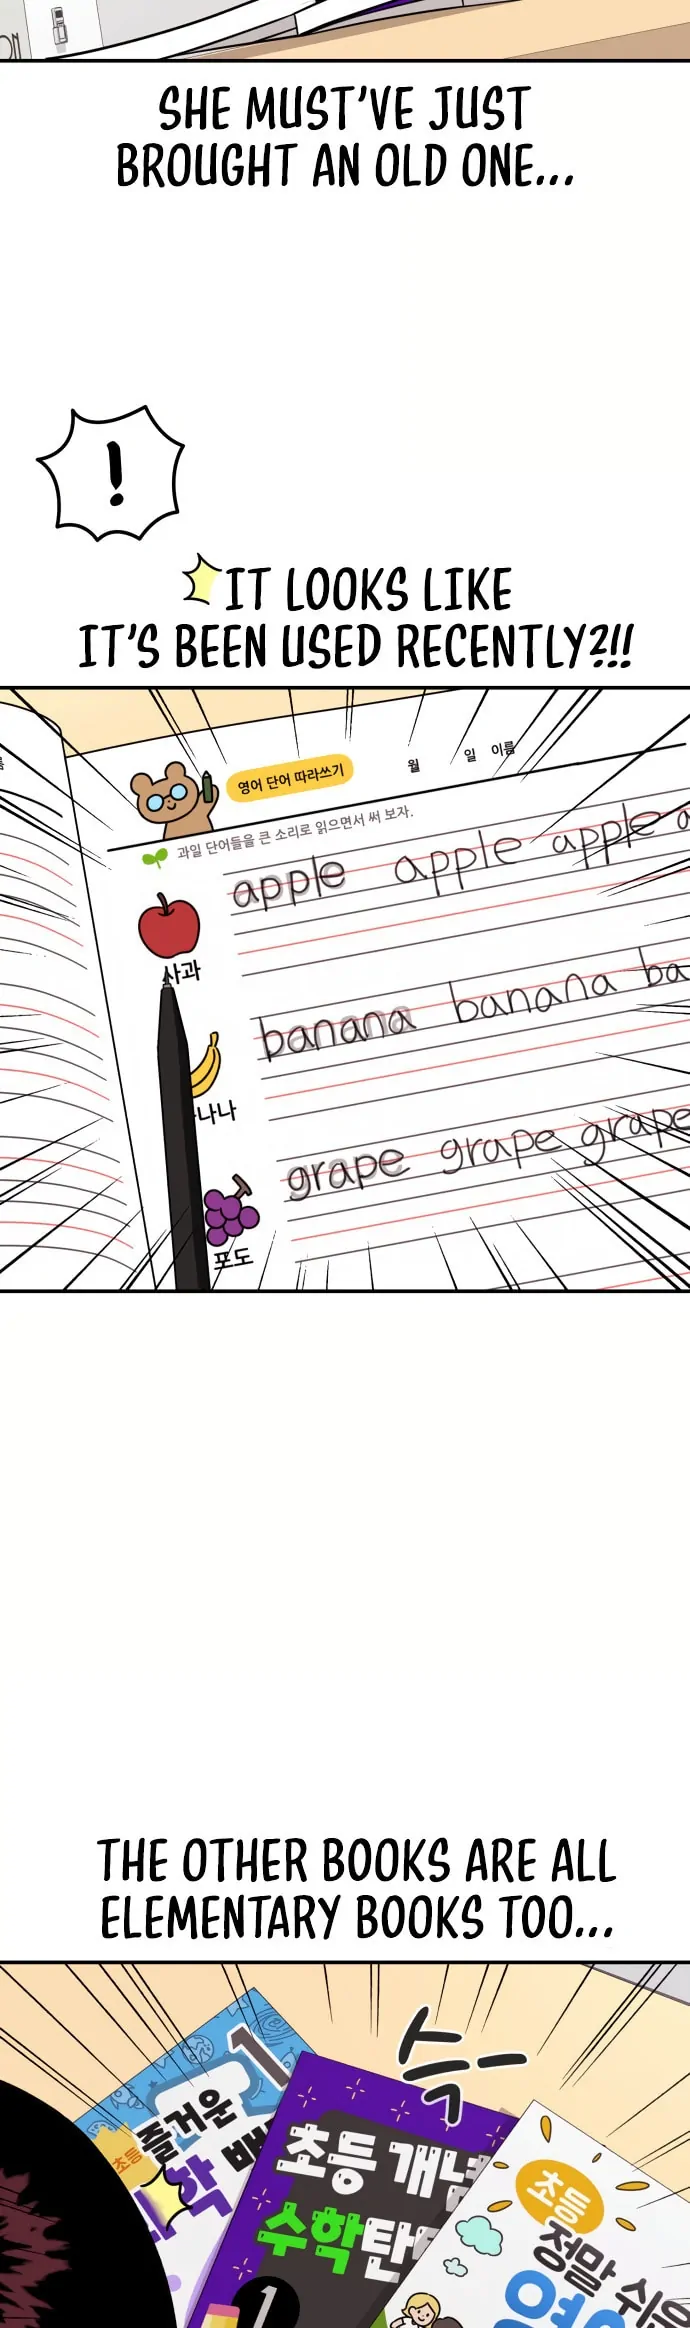 ON
SHE MUST'VE JUST
BROUGHT AN OLD ONE...
!
IT LOOKS LIKE
IT'S BEEN USED RECENTLY?!!
영어 단어 따라쓰기
월 일 이름
과일 단어들을 큰 소리로 읽으면서 써 보자.
apple apple apple a
사과
banana banana ba
나나
grape grape grape
포도
THE OTHER BOOKS ARE ALL
ELEMENTARY BOOKS TOO...
슥
1
초등 즐거운
과학
초등 개념
수학탄
1
초등
정말 쉬운
영어